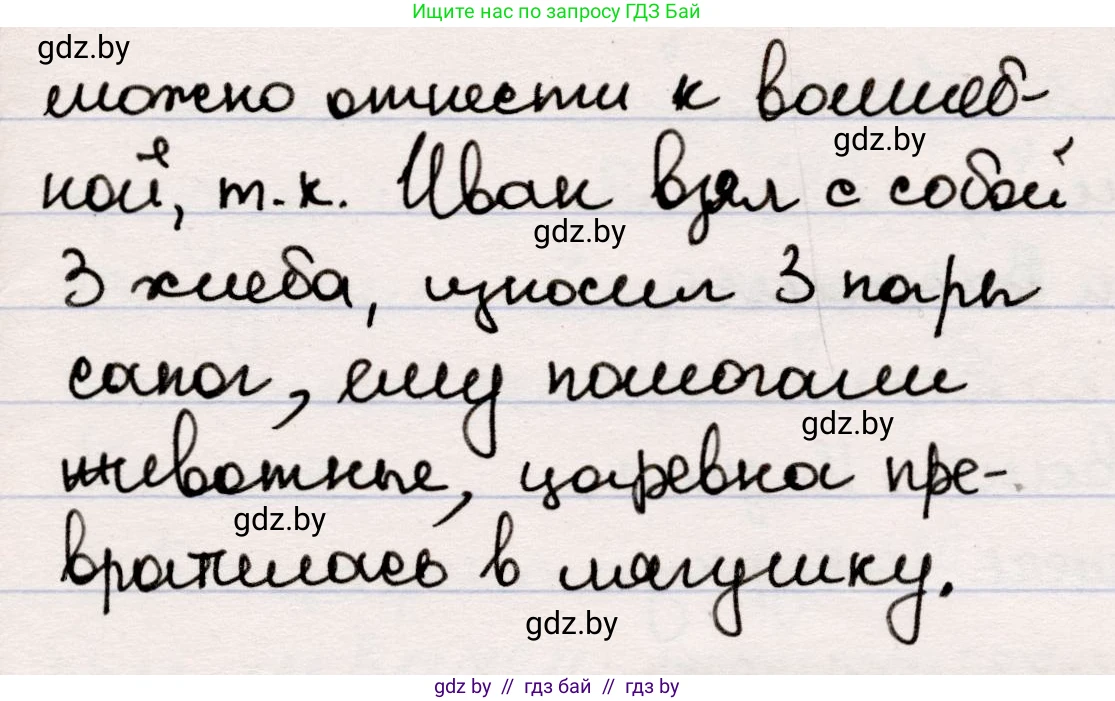 Ищите нас по запросу ГДЗ Бай
gdz.by
можно отнести к волшеб-
gdz.by
ной, т.к. Иван взял с собой
gdz.by
3 хлеба, износил 3 пары
сапог, ему помогали
gdz.by
животные, царевна пре-
gdz.by
вратилась в лягушку.
gdz.by
gdz by // гдз бай // гдз by